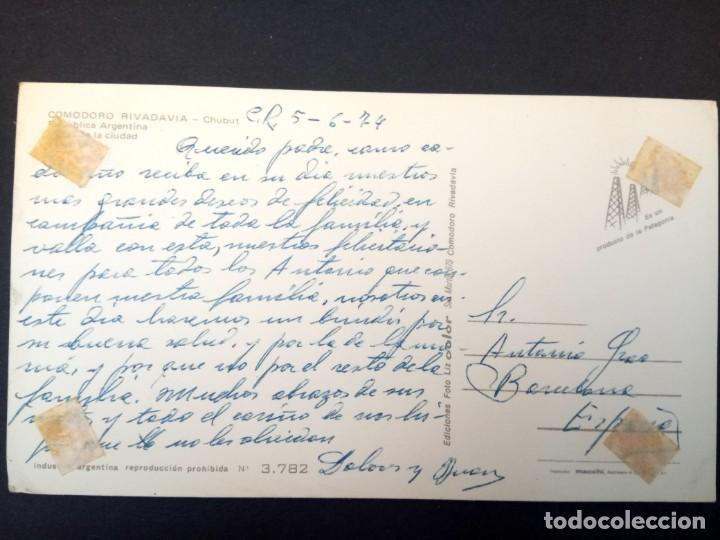 COMODORO RIVADAVIA – Chubut
República Argentina
de la ciudad
C.R. 5-6-74
Querido padre, como ca-
da año reciba en su dia nuestros
mas grandes deseos de felicidad, en
compañia de toda la família, y
valla con esta, nuestras felicitacio-
nes para todos los Antonio que com-
ponen nuestra família, nosotros en
este dia haremos un brindis por
su buena salud, y por la de la ma-
má, y por que no por el resto de la
família. Muchos abrazos de sus
y todo el cariño de sus hi-
jos que no les olvidan
Dolors y Juan
Industria Argentina reproducción prohibida Nº 3.782
Ediciones Foto Liz color Comodoro Rivadavia
Es un
producto de la Patagonia
Sr.
Antonio
Barcelona
España
todocoleccion
todocoleccion.net